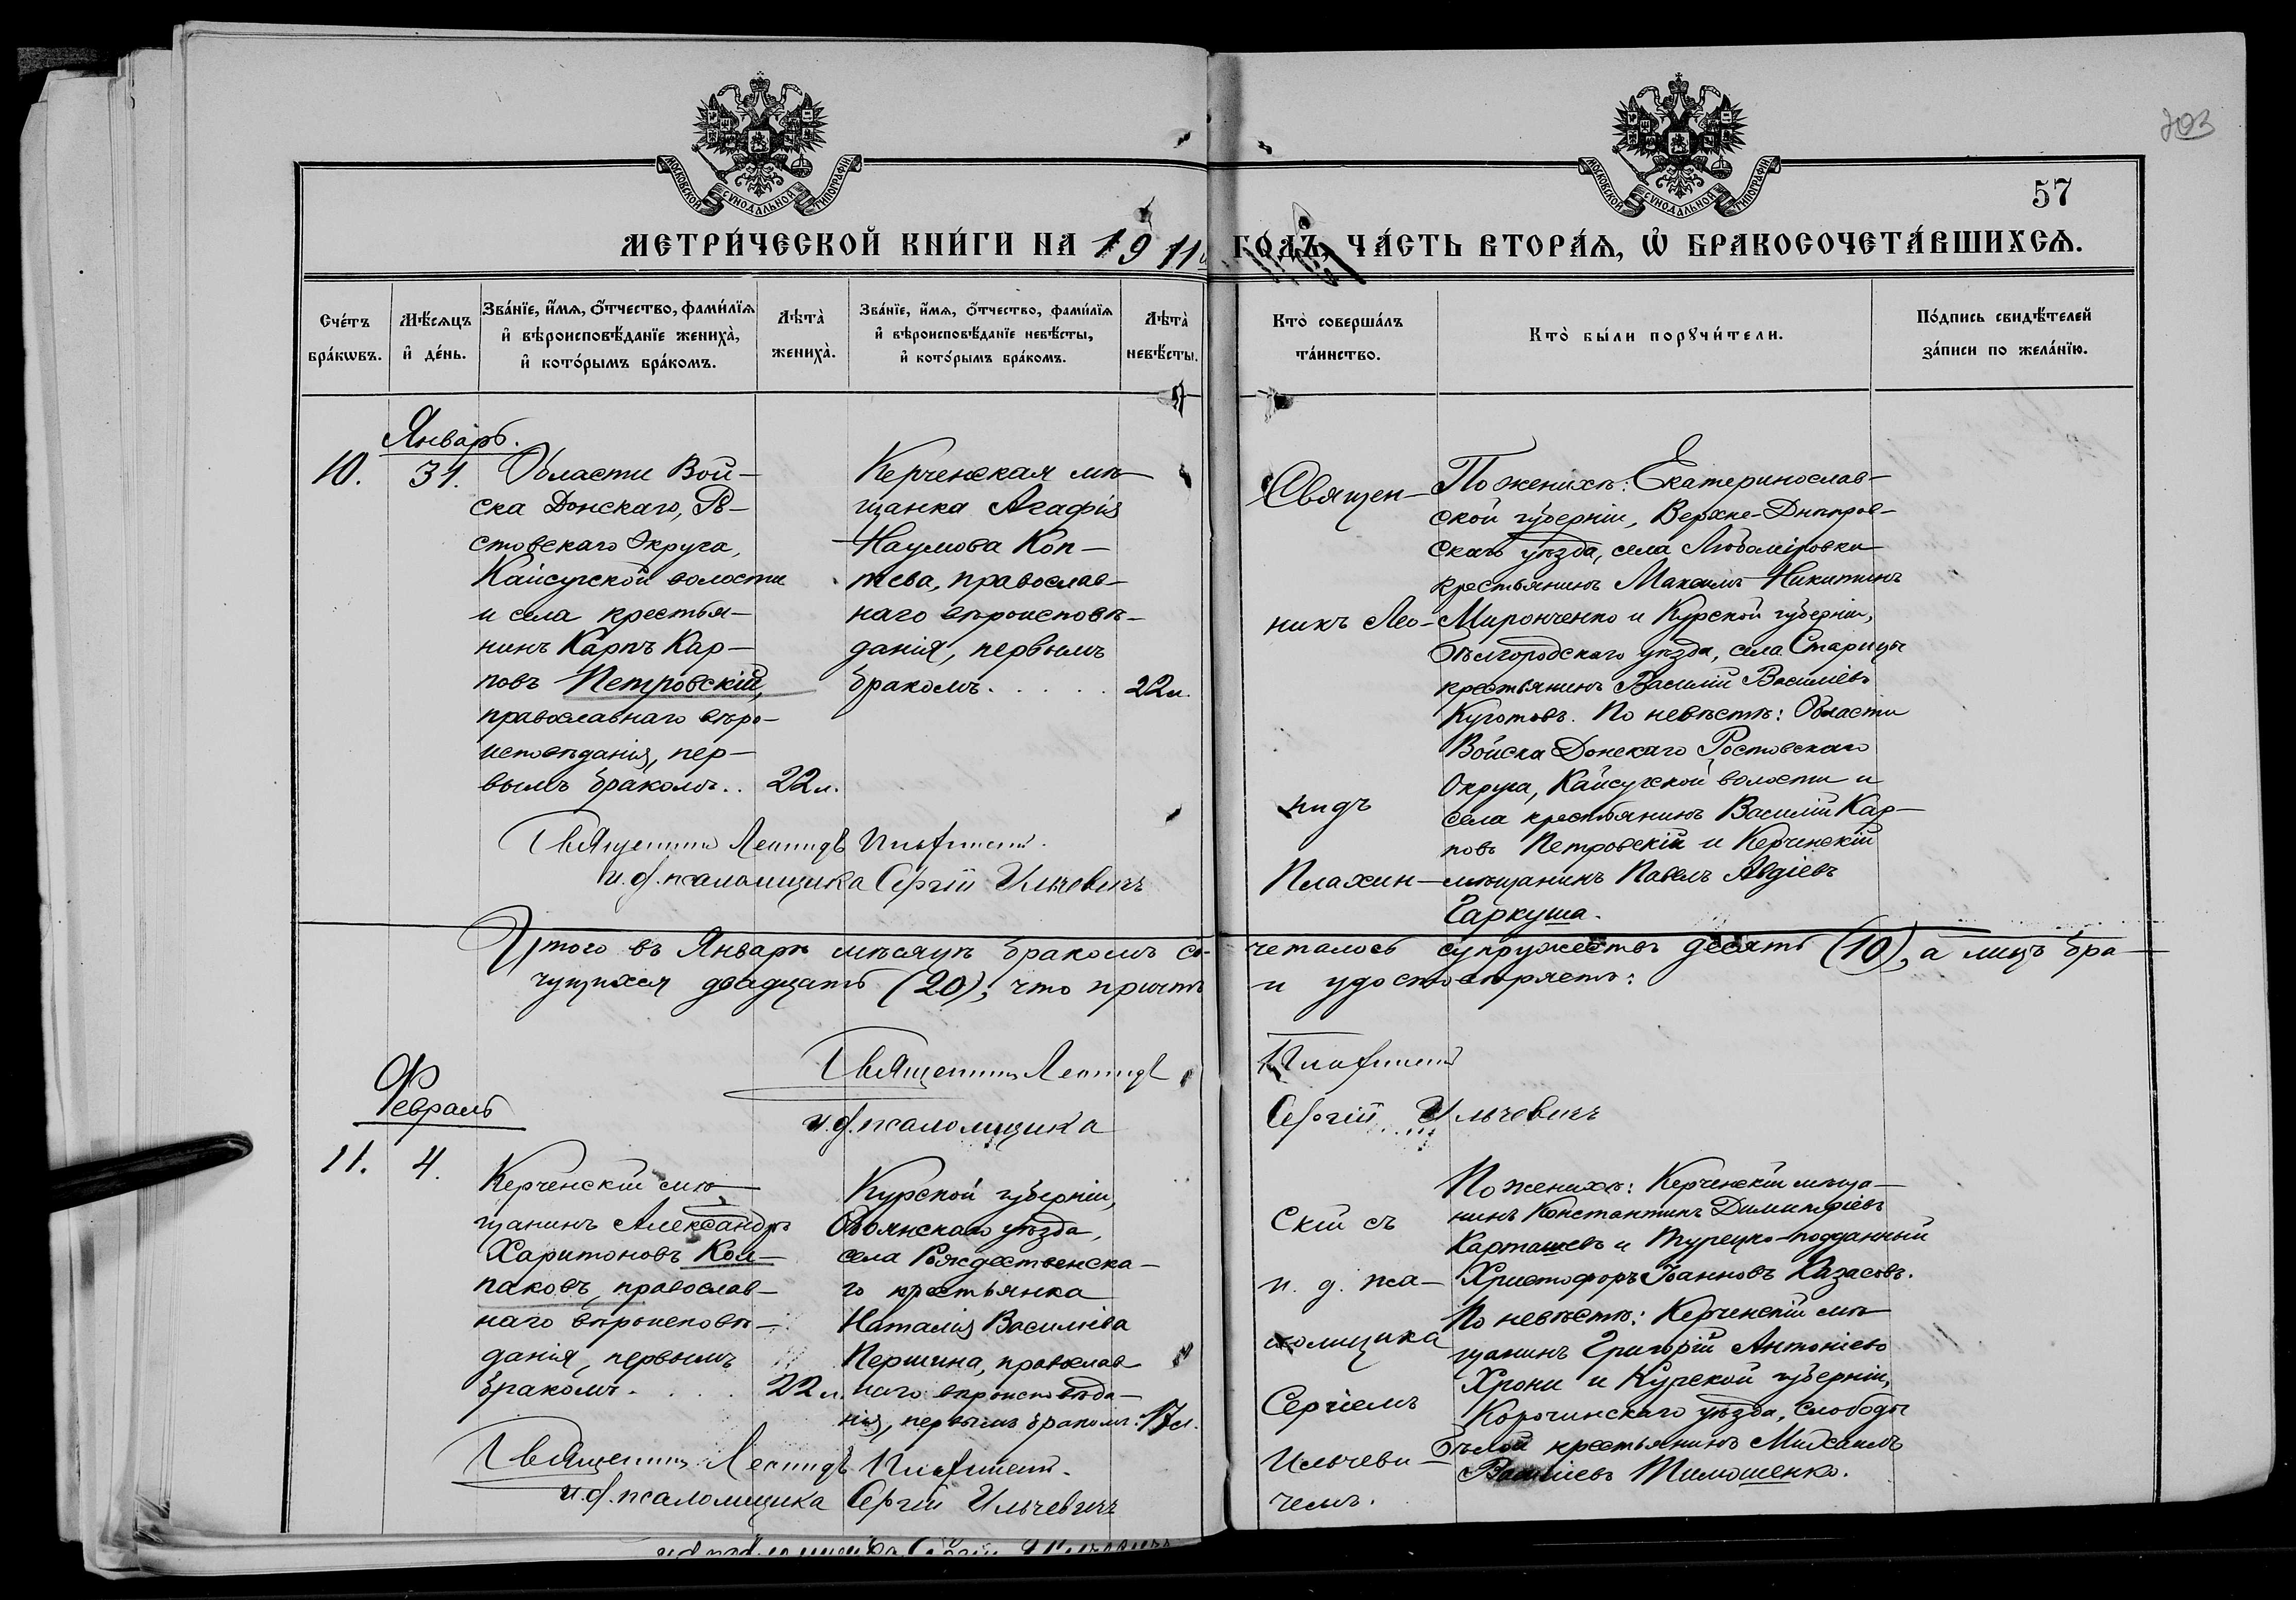 МОСКОВСКОЙ СѴНОДАЛЬНОЙ ТИПОГРАФІИ
МОСКОВСКОЙ СѴНОДАЛЬНОЙ ТИПОГРАФІИ
57
МЕТРИ́ЧЕСКОЙ КНИ́ГИ НА 1911 ГО́ДЪ, ЧА́СТЬ ВТОРА́Ѧ, Ѡ БРАКОСОЧЕТА́ВШИХСѦ.
Сче́тъ бра́кѡвъ.
Мѣ́сѧцъ и҆ де́нь.
Зва́нїе, и҆́мѧ, ѻ҆́тчество, фами́лїѧ
и҆ вѣроисповѣ́данїе жениха̀,
и҆ кото́рымъ бра́комъ.
Лѣта̀ жениха̀.
Зва́нїе, и҆́мѧ, ѻ҆́тчество, фами́лїѧ
и҆ вѣроисповѣ́данїе невѣ́сты,
и҆ кото́рымъ бра́комъ.
Лѣта̀ невѣ́сты.
Кто̀ соверша́лъ та́инство.
Кто̀ бы́ли порꙋчи́тели.
По́дпись свидѣ́телей
за́писи по жела́нїю.
Январь.
10.
31.
Области Вой-
ска Донскаго, Ро-
стовскаго Округа,
Кайсугской волости
и села крестья-
нинъ Карпъ Кар-
повъ Петровскій,
православнаго вѣро-
исповѣданія, пер-
вымъ бракомъ..
22 л.
Керченская мѣ-
щанка Агафія
Наумова Коп-
тева, православ-
наго вѣроисповѣ-
данія, первымъ
бракомъ.....
22 л.
Священ-
никъ Лео-
нидъ
Плахин-
По женихѣ: Екатеринослав-
ской губерніи, Верхне-Днѣпров-
скаго уѣзда, села Любоміровки
крестьянинъ Максимъ Никитинъ
Миронченко и Курской губерніи,
Бѣлгородскаго уѣзда, села Старицы
крестьянинъ Василій Василіевъ
По невѣстѣ: Области
Войска Донскаго Ростовскаго
Округа, Кайсугской волости и
села крестьянинъ Василій Кар-
повъ Петровскій и Керченскій
мѣщанинъ Павелъ Авдіевъ
Гаркуша.
Священникъ Леонидъ Плахинскій.
и. д. псаломщика Сергій Ильчевичъ
Итого въ Январѣ мѣсяцѣ бракомъ со-
четалось супружествъ десять (10), а лицъ бра-
чущихся двадцать (20); что причтъ
и удостовѣряетъ:
Священникъ Леонидъ Плахинскій
и. д. псаломщика Сергій Ильчевичъ
Февраль
11.
4.
Керченскій мѣ-
щанинъ Александръ
Харитоновъ Кол-
паковъ, православ-
наго вѣроисповѣ-
данія, первымъ
бракомъ.....
22 л.
Курской губерніи,
Обоянскаго уѣзда,
села Рождественска-
го крестьянка
Наталія Василіева
Першина, православ
наго вѣроисповѣда-
нія, первымъ бракомъ.
17 л.
скій съ
и. д. пса-
ломщика
Сергіемъ
Ильчеви-
чемъ.
По женихѣ: Керченскій мѣща-
нинъ Константинъ Димитріевъ
Карташевъ и Турецко-подданный
Христофоръ Іоанновъ Казасовъ.
По невѣстѣ: Керченскій мѣ
щанинъ Григорій Антоніевъ
Хрони и Курской губерніи,
Корочинскаго уѣзда, слободы
Бѣлой крестьянинъ Михаилъ
Василіевъ Тимошенко.
Священникъ Леонидъ Плахинскій.
и. д. псаломщика Сергій Ильчевичъ